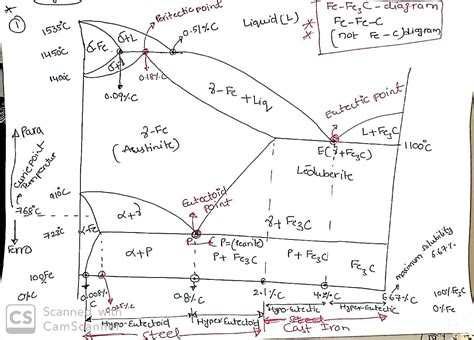 *
①
Peritectic point
0.51%C
Liquid (L)
* Fe-Fe3C - diagram
Fe-Fe-C
* (not Fe-C) diagram
1535°C
1450°C
140°C
δ-Fe
δ+L
δ+γ
0.18%C
0.09%C
γ-Fe + Liq
Eutectic Point
L+Fe3C
E(γ+Fe3C)
1100°C
γ-Fe
(Austinite)
Leduberite
Para
Curie point
Temperature
Ferro
910°C
768°C
723°C
α+γ
α-Fe
Eutectoid
Point
γ+Fe3C
P
P=(Pearlite)
α+P
P+ Fe3C
P+Fe3C
Fe3C
maximum solubility
6.67%
100%Fe
0%C
0.008%C
0.025%C
0.8%C
2.1%C
4.3%C
6.67%C
100%Fe3C
0%Fe
Hypo-Eutectoid
HyperEutectoid
Hypo-Eutectic
Hyper-Eutectic
Steel
Steel
Cast Iron
CS
Scanned with
CamScanner